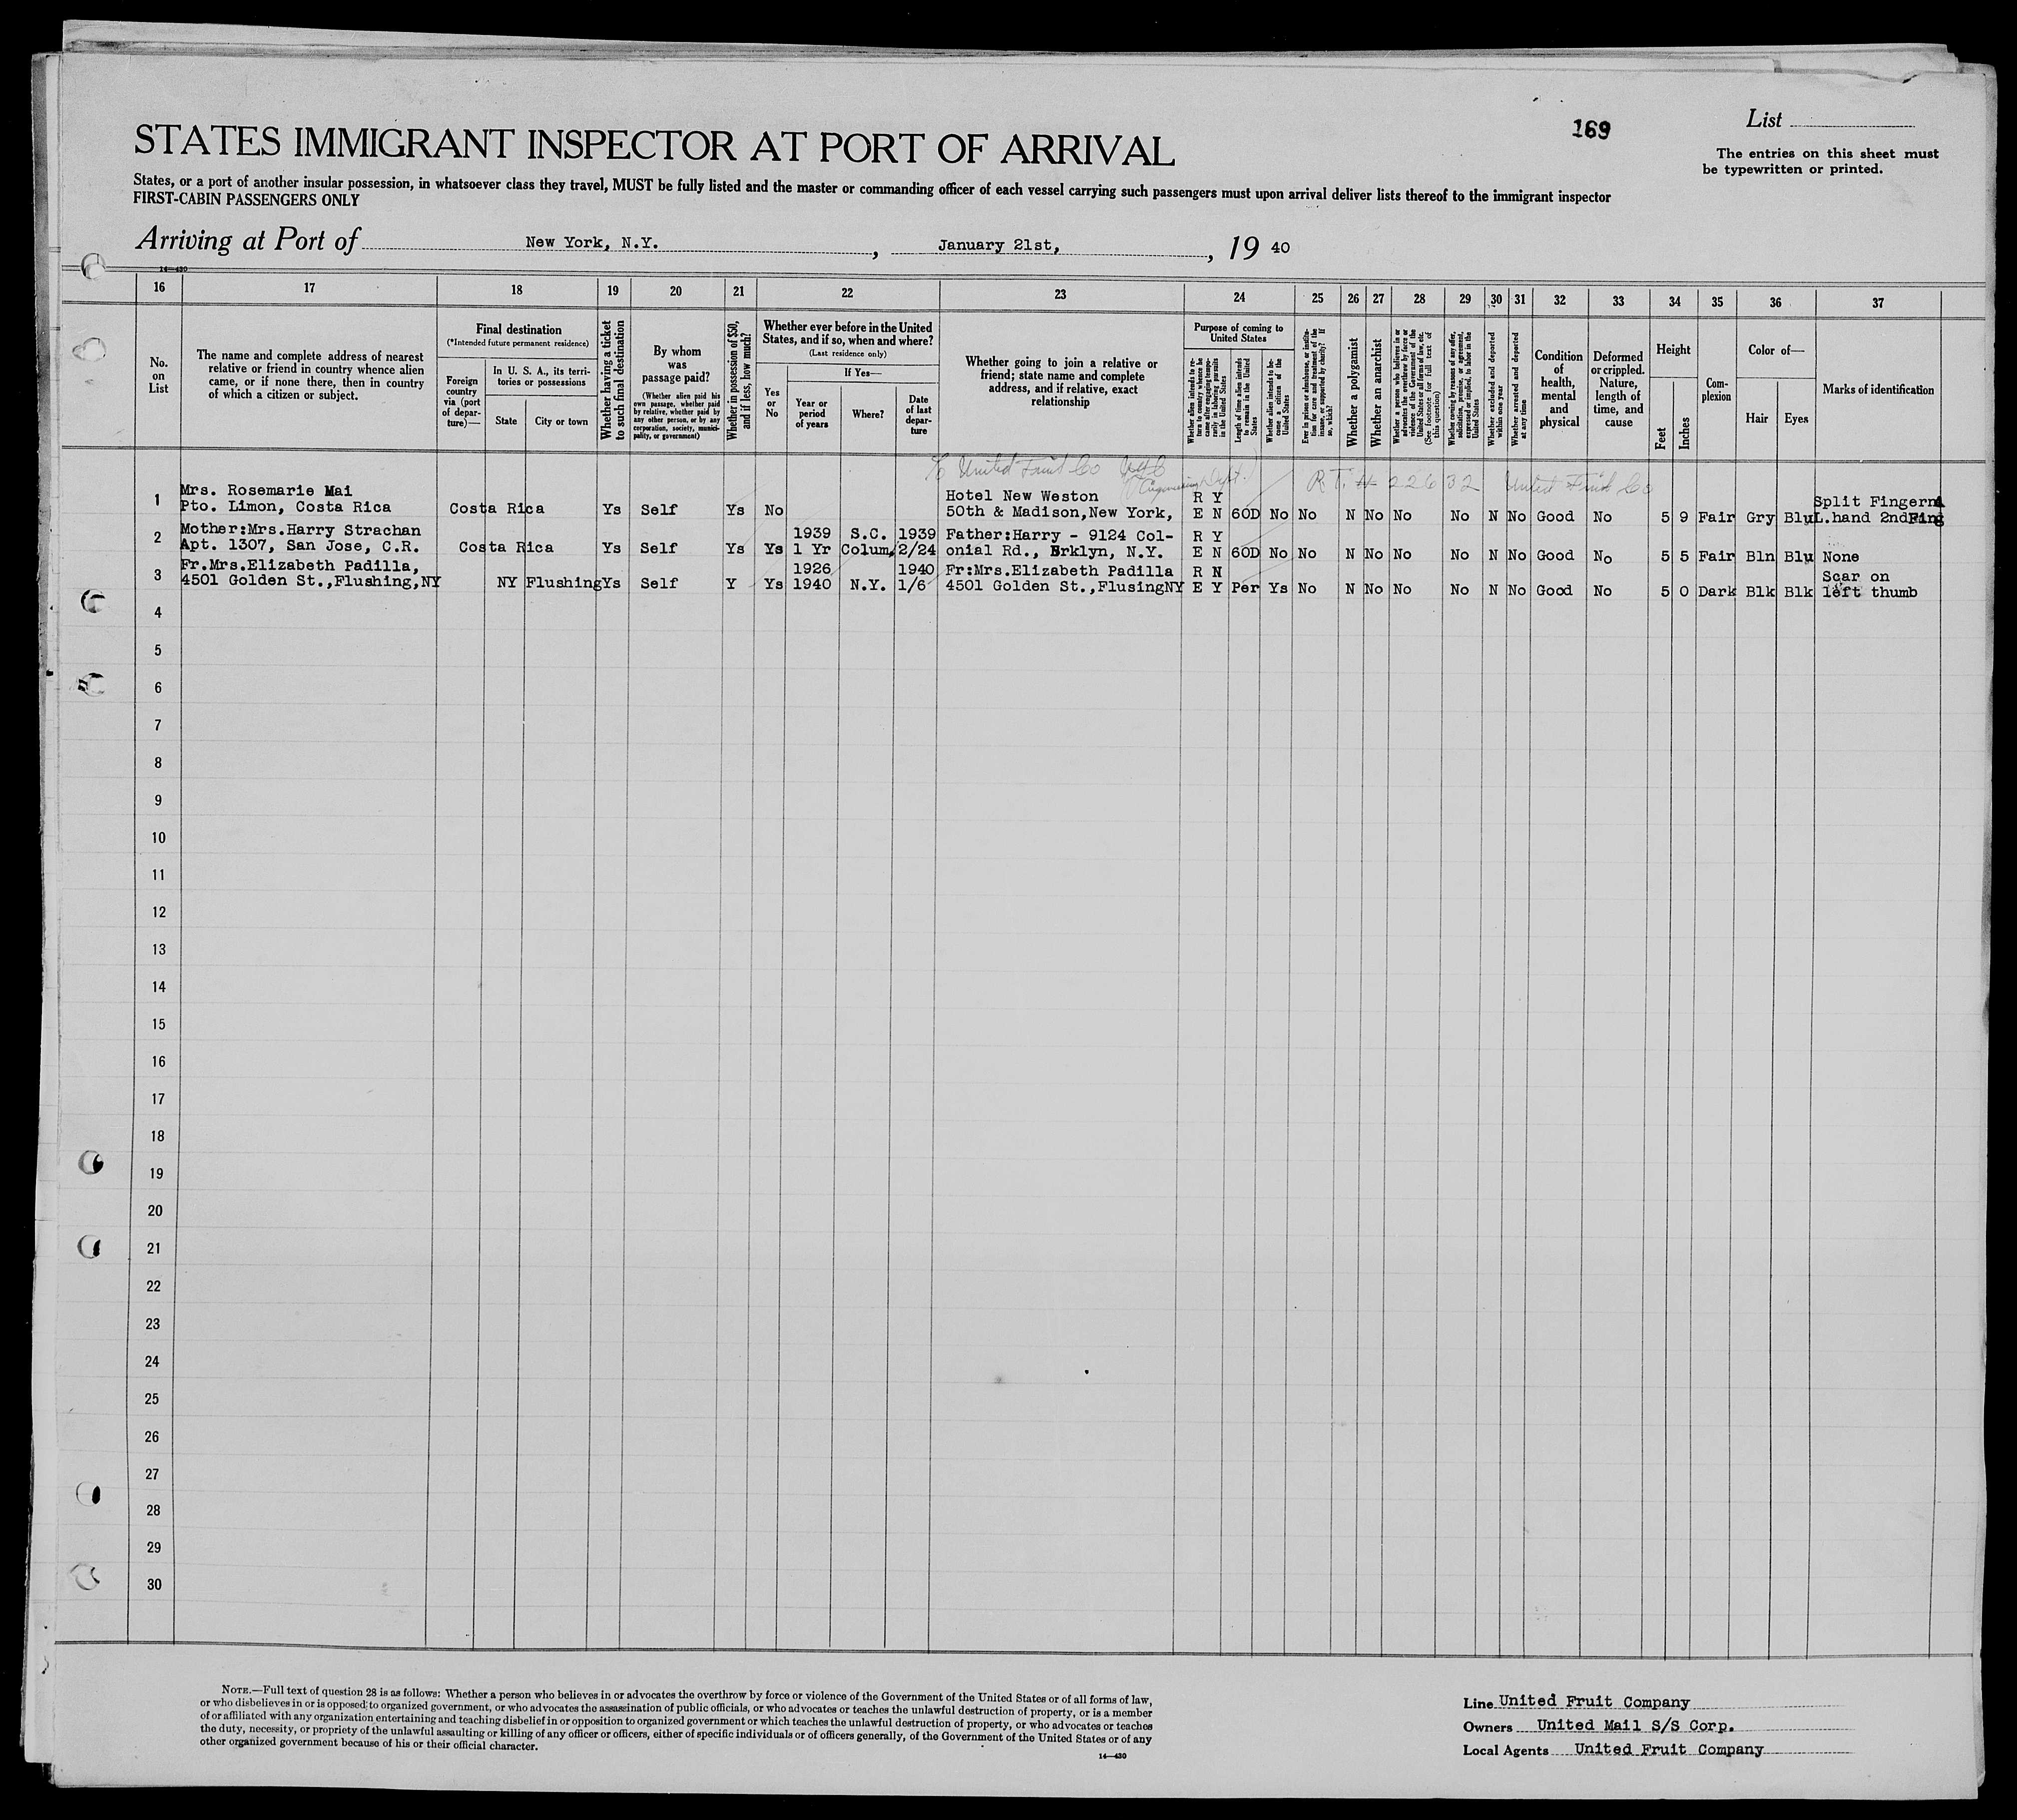 169
List
The entries on this sheet must
be typewritten or printed.
STATES IMMIGRANT INSPECTOR AT PORT OF ARRIVAL
States, or a port of another insular possession, in whatsoever class they travel, MUST be fully listed and the master or commanding officer of each vessel carrying such passengers must upon arrival deliver lists thereof to the immigrant inspector
FIRST-CABIN PASSENGERS ONLY
Arriving at Port of New York, N.Y. , January 21st, , 19 40
14—430
16 17 18 19 20 21 22 23 24 25 26 27 28 29 30 31 32 33 34 35 36 37
No. on List
The name and complete address of nearest
relative or friend in country whence alien
came, or if none there, then in country
of which a citizen or subject.
Final destination
(*Intended future permanent residence)
Foreign country via (port of departure)—
In U. S. A., its territories or possessions
State
City or town
Whether having a ticket to such final destination
By whom was passage paid?
(Whether alien paid his own passage, whether paid by relative, whether paid by any other person, or by any corporation, society, municipality, or government)
Whether in possession of $50, and if less, how much?
Whether ever before in the United
States, and if so, when and where?
(Last residence only)
Yes or No
If Yes—
Year or period of years
Where?
Date of last departure
Whether going to join a relative or
friend; state name and complete
address, and if relative, exact
relationship
Purpose of coming to United States
Whether alien intends to return to country whence he came after engaging temporarily in laboring pursuits in the United States
Length of time alien intends to remain in the United States
Whether alien intends to become a citizen of the United States
Ever in prison or almshouse, or institution for care and treatment of the insane, or supported by charity? If so, which?
Whether a polygamist
Whether an anarchist
Whether a person who believes in or advocates the overthrow by force or violence of the Government of the United States or all forms of law, etc. (See footnote for full text of this question)
Whether coming by reasons of any offer, solicitation, promise, or agreement, expressed or implied, to labor in the United States
Whether excluded and deported within one year
Whether arrested and deported at any time
Condition of health, mental and physical
Deformed or crippled. Nature, length of time, and cause
Height
Feet
Inches
Complexion
Color of—
Hair
Eyes
Marks of identification
United Fruit Co
Engineering Dept.
R.T. # 22632 United Fruit Co
Mrs. Rosemarie Mai Hotel New Weston R Y Split Fingern
1 Pto. Limon, Costa Rica Costa Rica Ys Self Ys No 50th & Madison,New York, E N 60D No No N No No No N No Good No 5 9 Fair Gry Blu L.hand 2nd Fing
Mother:Mrs.Harry Strachan 1939 S.C. 1939 Father:Harry - 9124 Col- R Y
2 Apt. 1307, San Jose, C.R. Costa Rica Ys Self Ys Ys 1 Yr Colum, 2/24 onial Rd., Brklyn, N.Y. E N 60D No No N No No No N No Good No 5 5 Fair Bln Blu None
Fr.Mrs.Elizabeth Padilla, 1926 1940 Fr:Mrs.Elizabeth Padilla R N Scar on
3 4501 Golden St.,Flushing,NY NY Flushing Ys Self Y Ys 1940 N.Y. 1/6 4501 Golden St.,FlusingNY E Y Per Ys No N No No No N No Good No 5 0 Dark Blk Blk left thumb
4
5
6
7
8
9
10
11
12
13
14
15
16
17
18
19
20
21
22
23
24
25
26
27
28
29
30
NOTE.—Full text of question 28 is as follows: Whether a person who believes in or advocates the overthrow by force or violence of the Government of the United States or of all forms of law,
or who disbelieves in or is opposed to organized government, or who advocates the assassination of public officials, or who advocates or teaches the unlawful destruction of property, or is a member
of or affiliated with any organization entertaining and teaching disbelief in or opposition to organized government or which teaches the unlawful destruction of property, or who advocates or teaches
the duty, necessity, or propriety of the unlawful assaulting or killing of any officer or officers, either of specific individuals or of officers generally, of the Government of the United States or of any
other organized government because of his or their official character.
14—430
Line United Fruit Company
Owners United Mail S/S Corp.
Local Agents United Fruit Company